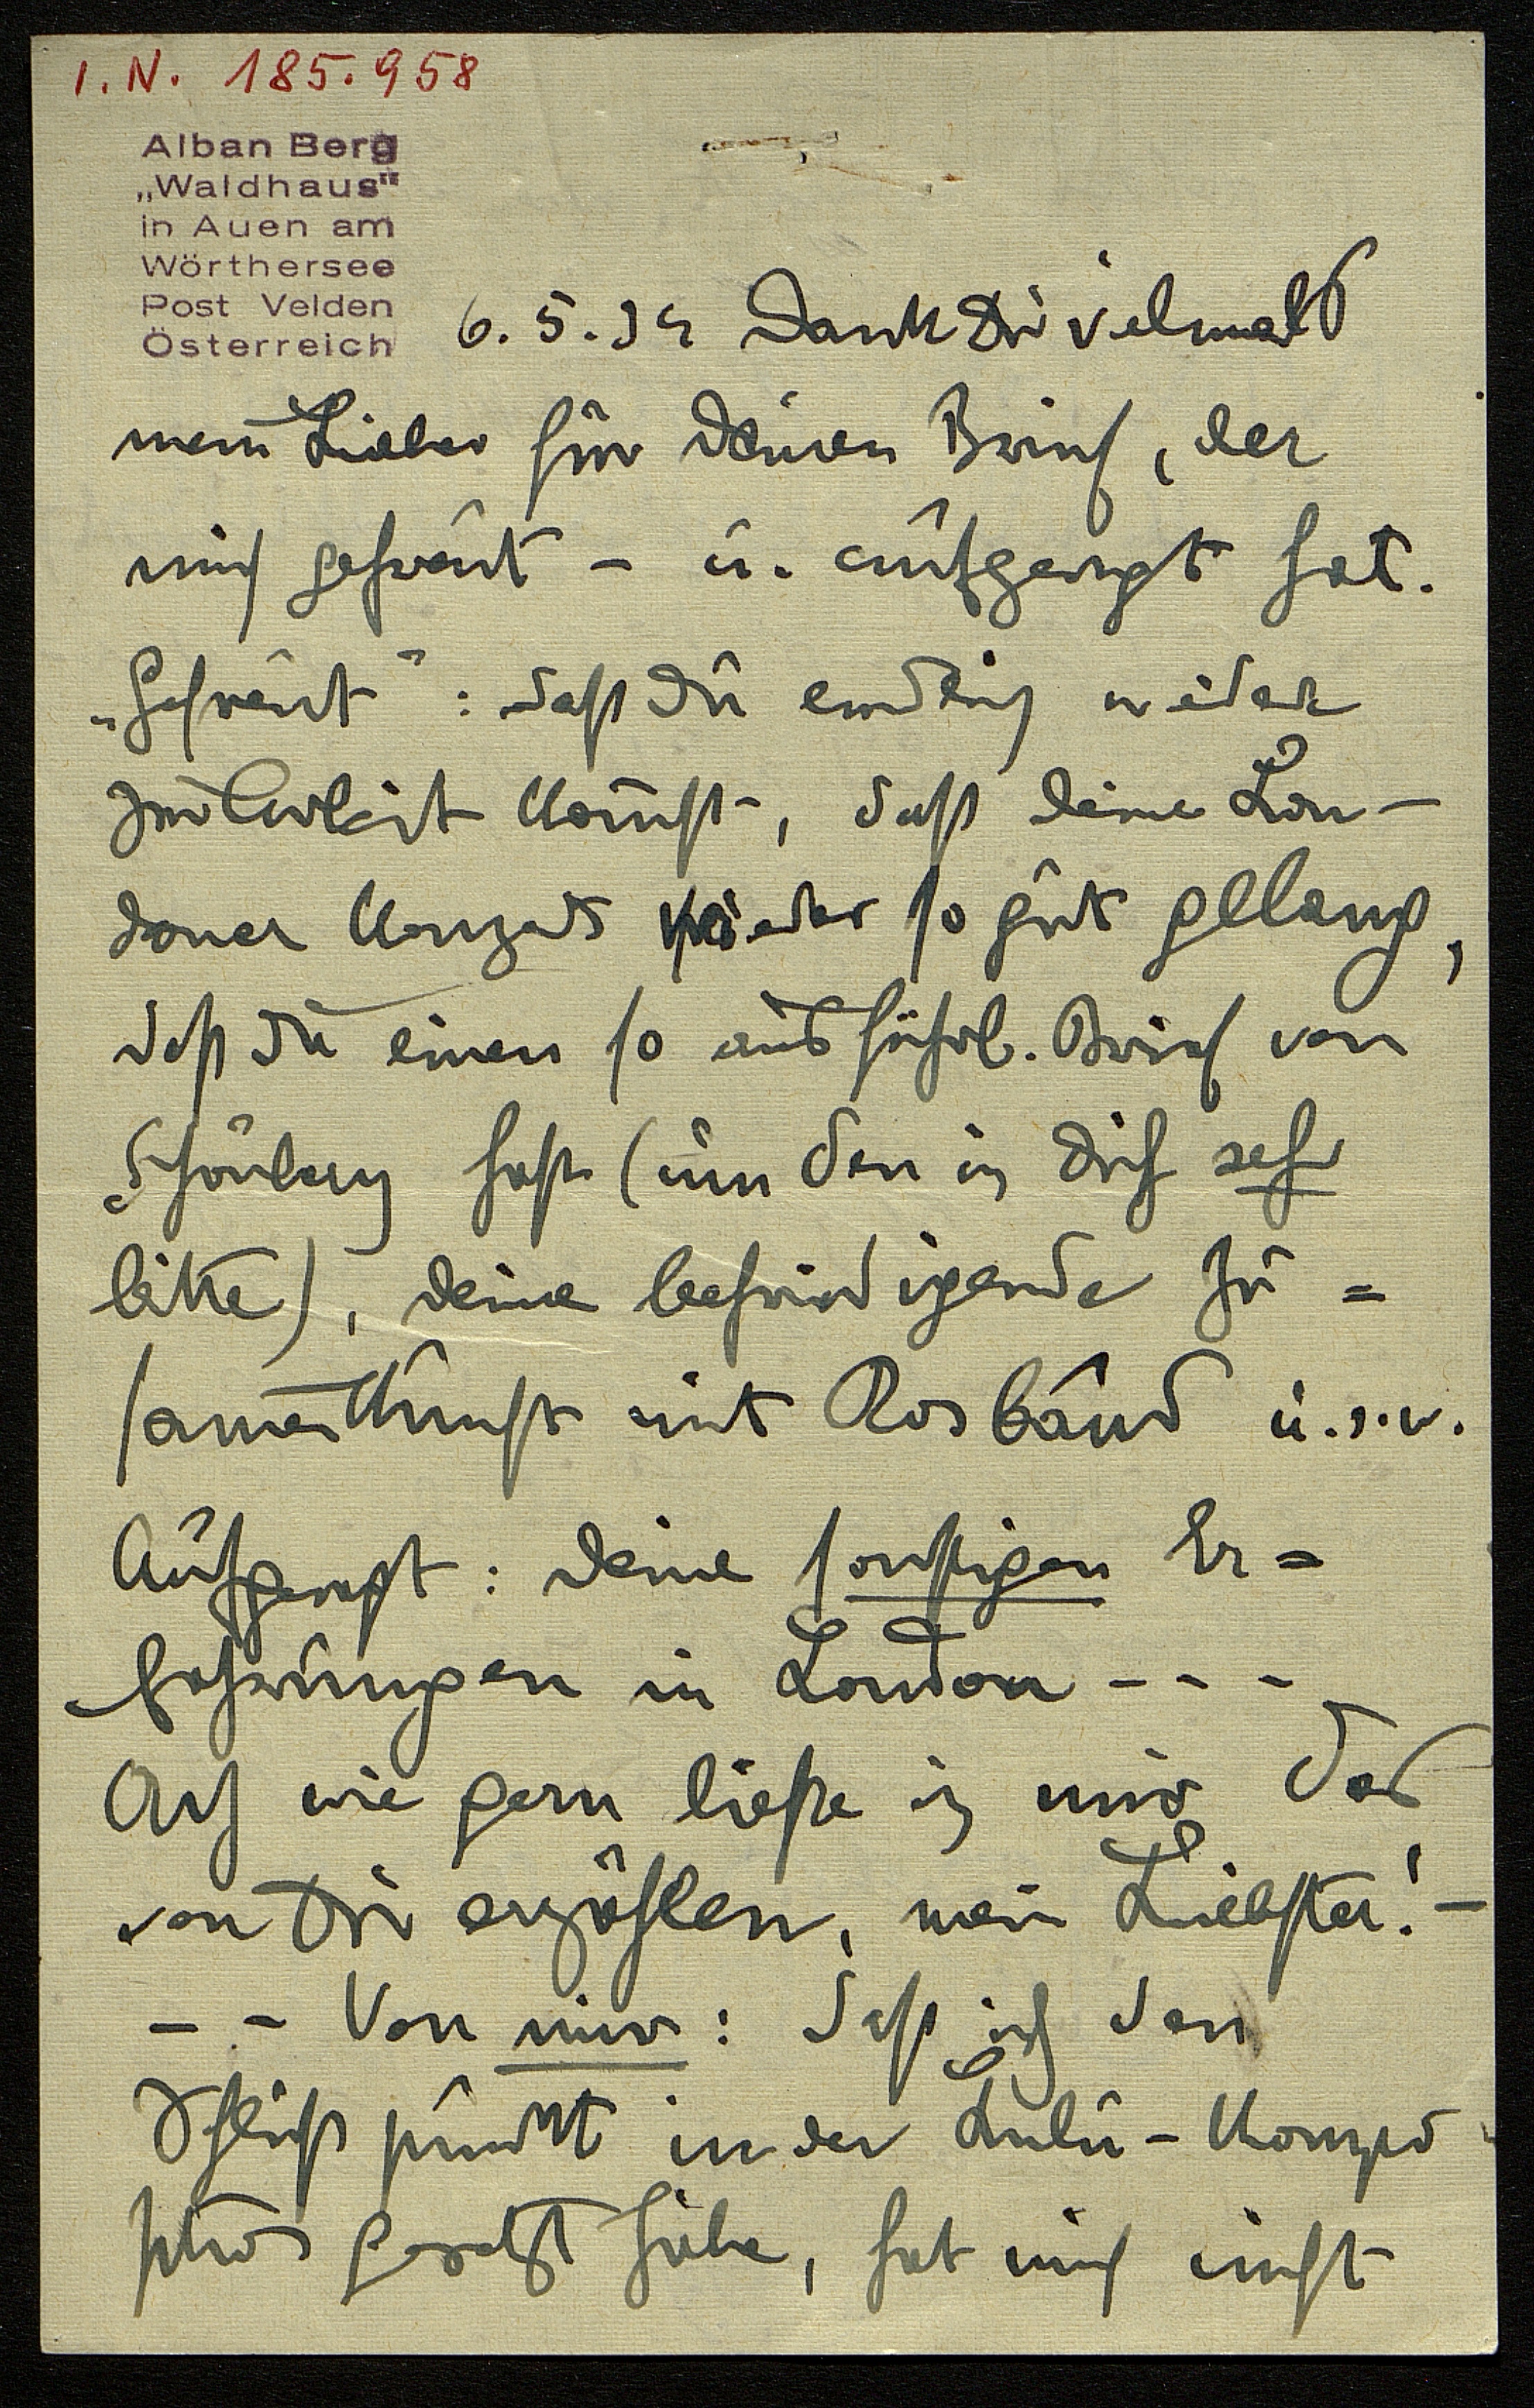 I.N. 185.958
Alban Berg
„Waldhaus"
in Auen am
Wörthersee
Post Velden
Österreich
6.5.34 Dank Dir vielmals
mein Lieber für Deinen Brief, der
mich gefreut - u. aufgeregt hat.
„Gefreut": daß Du endlich wieder
zur Arbeit kommst, daß deine Lon-
doner Konzerts wieder so gut gelang,
daß Du einen so ausführl. Brief von
Schönberg hast (um den ich Dich sehr
bitte), deine befriedigende Zu=
sammenkunft mit Rosbaud u.s.w.
Aufgeregt: deine sonstigen Er=
fahrungen in London - - -
Ach wie gern ließe ich mir das
von Dir erzählen, mein Liebster! -
- - Von mir: Daß ich den
Schlußpunkt in der Lulu-Kompo
sition gesetzt habe, hat mich nicht